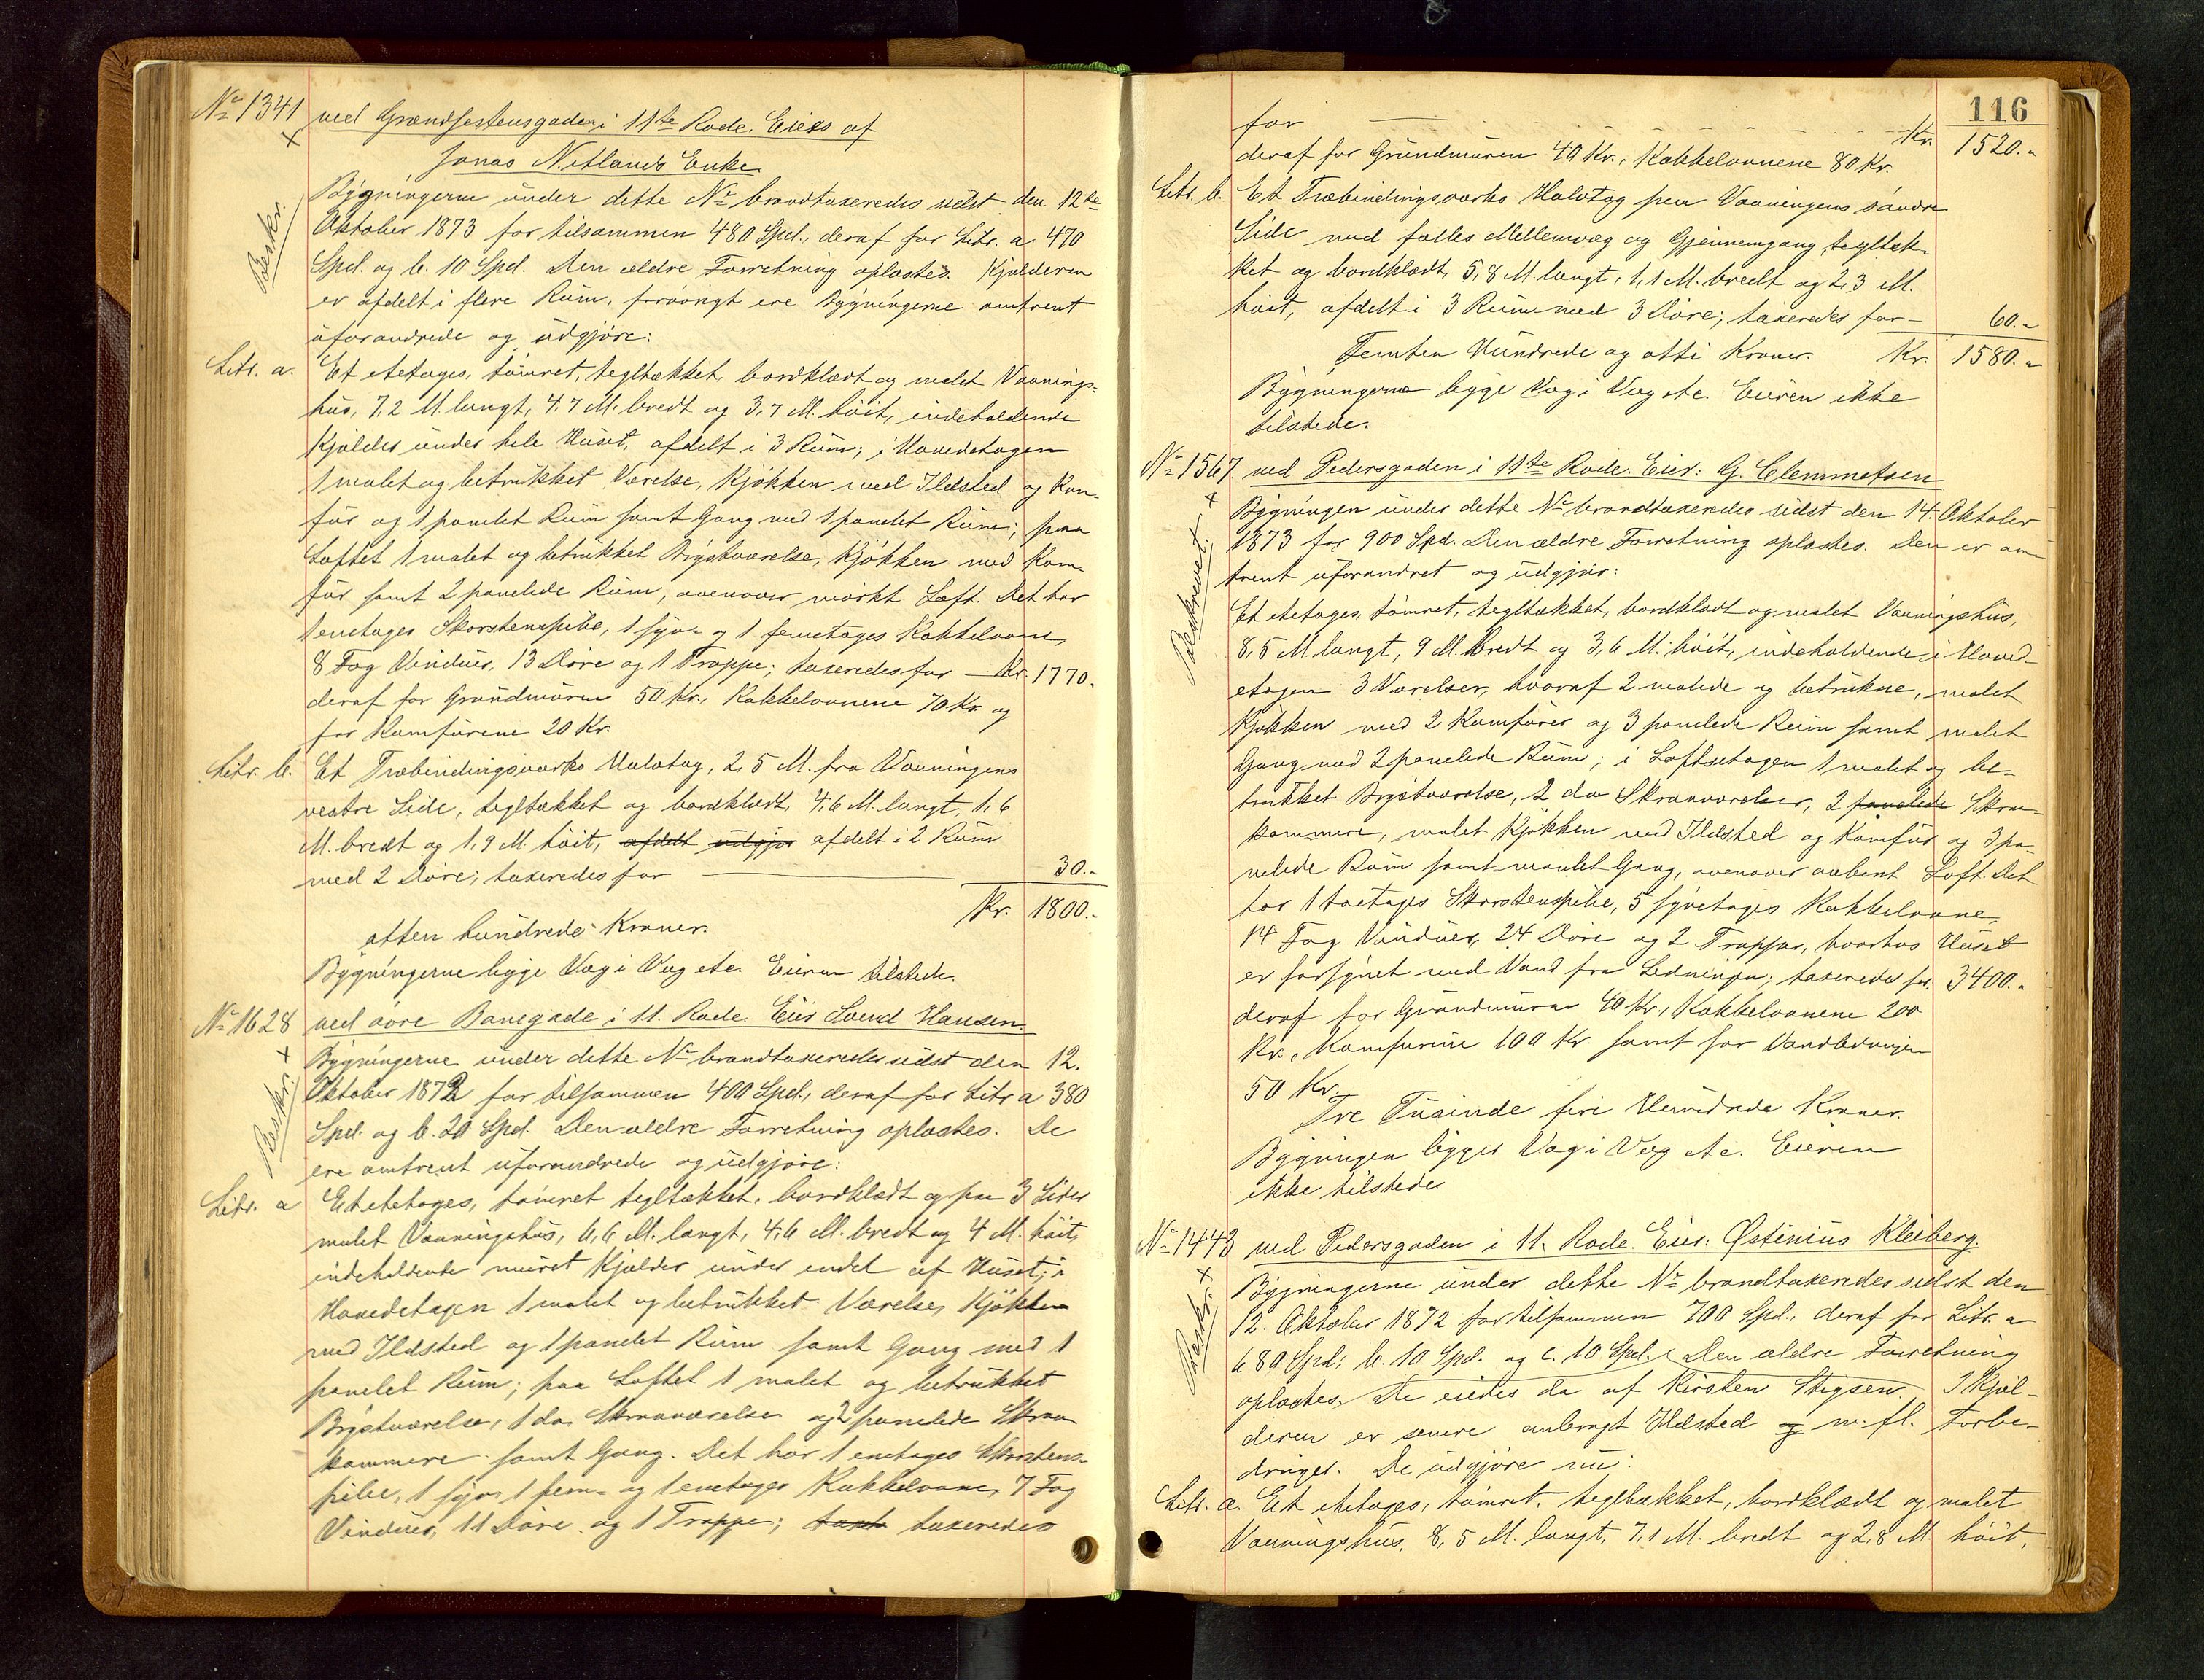 No 1341 ved Grændsestensgaden i 11te Rode. Eies af
Jonas Netlands Enke
Beskr.
Bÿgningerne under dette No brandtaxeredes sidst den 12te
Oktober 1873 for tilsammen 480 Spd., deraf for Litr. a 470
Spd. og b. 10 Spd. Den ældre Forretning oplæstes. Kjælderen
er afdelt i flere Rum, forøvrigt ere Bygningerne omtrent
uforandrede og udgjøre:
Litr. a. Et etetages, tømret, tegltækket, bordklædt og malet Vaanings-
hus, 7,2 M. langt, 4,7 M. bredt og 3,7 M. høit, indeholdende
Kjælder under hele Huset, afdelt i 3 Rum; i Hovedetagen
1 malet og betrukket Værelse, Kjøkken med Ildsted og Kom-
fur og 1 panelet Rum samt Gang med 1 panelet Rum; paa
Loftet 1 malet og betrukket Brystværelse, Kjøkken med Kom-
fur samt 2 panelede Rum, ovenover mørkt Loft. Det har
1 enetages Skorstenspibe, 1 syv- og 1 femetages Kakkelovne,
8 Fag Vinduer, 13 Døre og 1 Trappe; taxeredes for — Kr. 1770.
deraf for Grundmuren 50 Kr., Kakkelovnene 70 Kr. og
for Komfurene 20 Kr.
Litr. b. Et Træbindingsværks Halvtag, 2,5 M. fra Vaaningens
vestre Side, tegltækket og bordklædt, 4,6 M. langt, 1,6
M. bredt og 1,9 M. høit, afdelt udgjør afdelt i 2 Rum
med 2 Døre; taxeredes for — 30.-
Kr. 1800.-
atten hundrede Kroner.
Bÿgningerne ligge Væg i Væg etc. Eieren tilstede.
No 1628 ved øvre Banegade i 11. Rode. Eier Svend Hansen.
Beskr.
Bÿgningerne under dette No brandtaxeredes sidst den 12.
Oktober 1872 for tilsammen 400 Spd., deraf for Litr a 380
Spd. og b. 20 Spd. Den ældre Forretning oplæstes. De
ere omtrent uforandrede og udgjøre:
Litr. a Et etetages, tømret tegltækket, bordklædt og paa 3 Sider
malet Vaaningshus, 6,6 M. langt, 4,6 M. bredt og 4 M. høit,
indeholdende muret Kjælder under endel af Huset; i
Hovedetagen 1 malet og betrukket Værelse, Kjøkken
med Ildsted og 1 panelet Rum samt Gang med 1
panelet Rum; paa Loftet 1 malet og betrukket
Brystværelse, 1 do. Skraaværelse og 2 panelede Skraa
kammere samt Gang. Det har 1 enetages Skorstens-
pibe, 1 syv, 1 fem- og 1 enetages Kakkelovne, 7 Fag
Vinduer, 11 Døre og 1 Trappe; taxeredes
116
for — Kr. 1520.-
deraf for Grundmuren 40 Kr., Kakkelovnene 80 Kr.
Litr. b. Et Træbindingsværks Halvtag paa Vaaningens søndre
Side med fælles Mellemvæg og Gjennemgang, tegltæk-
ket og bordklædt, 5,8 M. langt, 1,1 M. bredt og 2,3 M.
høit, afdelt i 3 Rum med 3 Døre; taxeredes for — 60.-
Femten Hundrede og otti Kroner. Kr. 1580.-
Bÿgningerne ligge Væg i Væg etc. Eieren ikke
tilstede.
No 1567 ved Pedersgaden i 11te Rode. Eier: G. Clemmetsen
Beskrevet.
Bÿgningen under dette No brandtaxeredes sidst den 14. Oktober
1873 for 900 Spd. Den ældre Forretning oplæstes. Den er om-
trent uforandret og udgjør:
Et etetages, tømret, tegltækket, bordklædt og malet Vaaningshus,
8,5 M. langt, 9 M. bredt og 3,6 M. høit, indeholdende i Hoved-
etagen 3 Værelser, hvoraf 2 malede og betrukne, malet
Kjøkken med 2 Komfurer og 3 panelede Rum samt malet
Gang med 2 panelede Rum; i Loftsetagen 1 malet og be-
trukket Brystværelse, 2 do Skraaværelser, 2 panelede Skraa-
kammere, malet Kjøkken med Ildsted og Komfur og 3 pa-
nelede Rum samt malet Gang, ovenover aabent Loft. Det
har 1 toetages Skorstenspibe, 5 syvetages Kakkelovne,
14 Fag Vinduer, 24 Døre og 2 Trapper, hvorhos Huset
er forsynet med Vand fra Ledningen; taxeredes for. 3400.-
deraf for Grundmuren 40 Kr., Kakkelovnene 200
Kr., Komfurene 100 Kr. samt for Vandledningen
50 Kr.
Tre Tusinde fire Hundrede Kroner.
Bygningen ligger Væg i Væg etc. Eieren
ikke tilstede
No 1443 ved Pedersgaden i 11. Rode. Eier: Østinius Kleiberg.
Beskr.
Bygningerne under dette No brandtaxeredes sidst den
12. Oktober 1872 for tilsammen 700 Spd., deraf for Litr. a
680 Spd; b. 10 Spd. og c. 10 Spd. Den ældre Forretning
oplæstes. De eiedes da af Kirsten Stigsen. I Kjæl-
deren er senere anbragt Ildsted og m. fl. Forbe-
dringer. De udgjøre nu:
Litr. a. Et etetages, tømret, tegltækket, bordklædt og malet
Vaaningshus, 8,5 M. langt, 7,1 M. bredt og 2,8 M. høit,